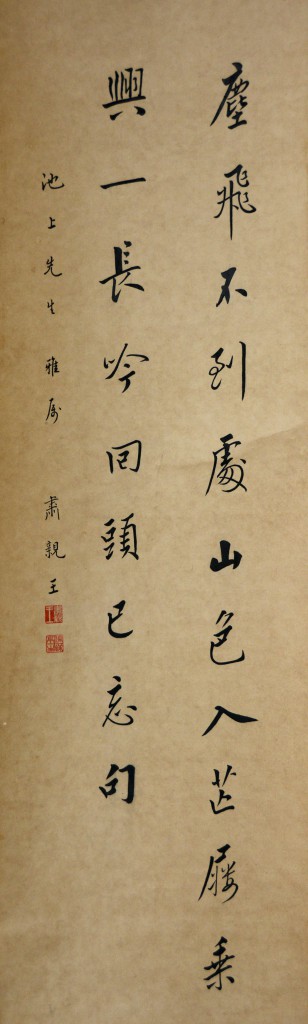 塵飛不到處山色入芒屩乗
興一長吟回頭已忘句
池上先生 雅屬 肅親王